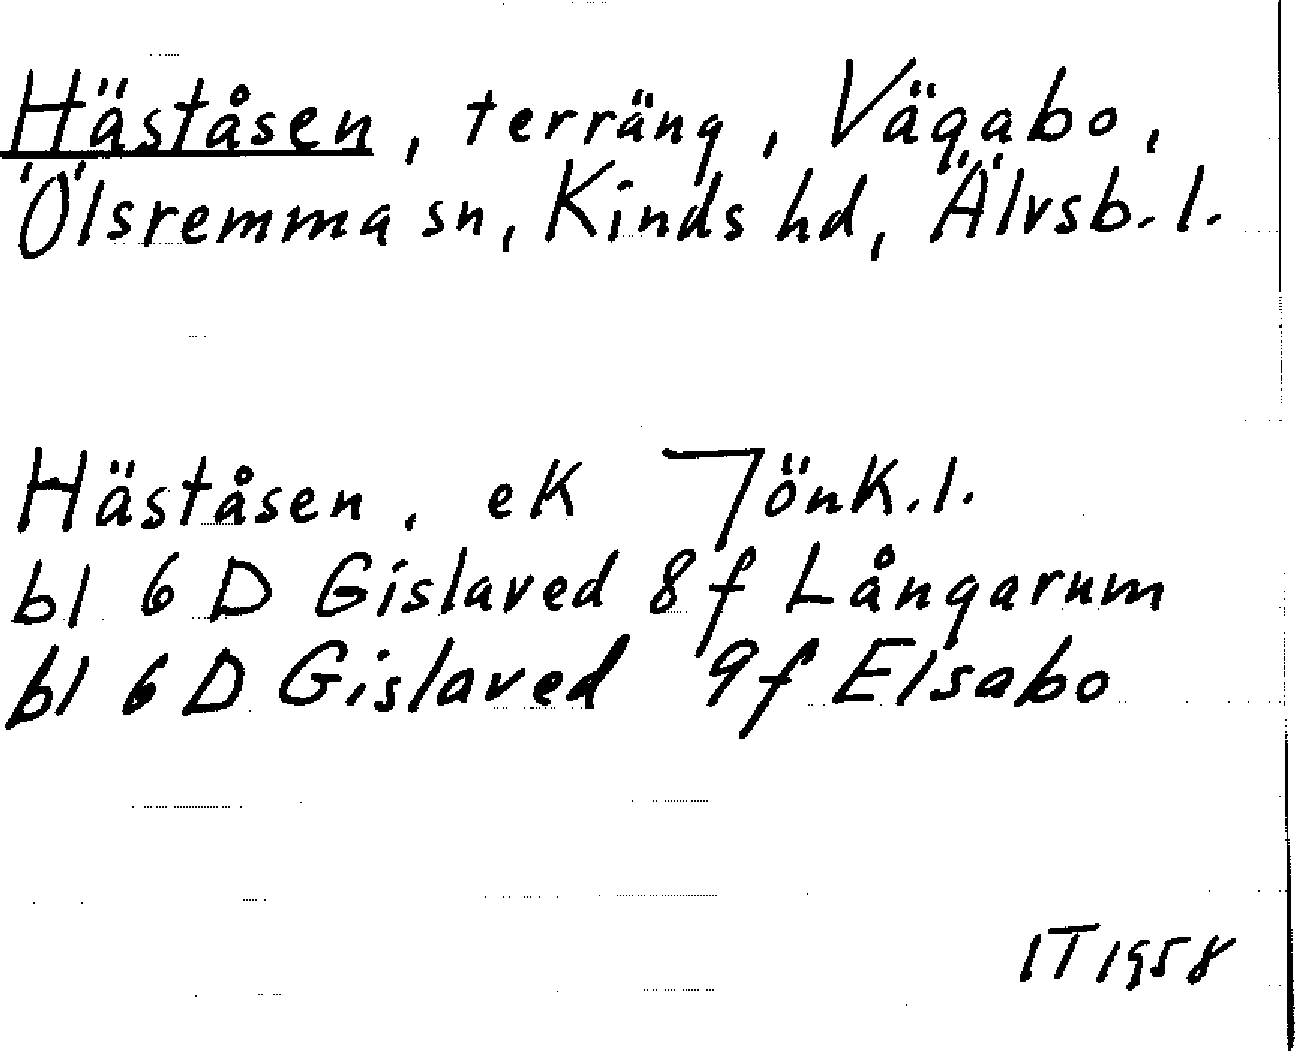 Häståsen, terräng, Vägabo,
Ölsremma sn, Kinds hd, Älvsb. l.
Häståsen, ek Jönk. l.
bl 6 D Gislaved 8 f Långarum
bl 6 D Gislaved 9 f Elsabo
IT 1958